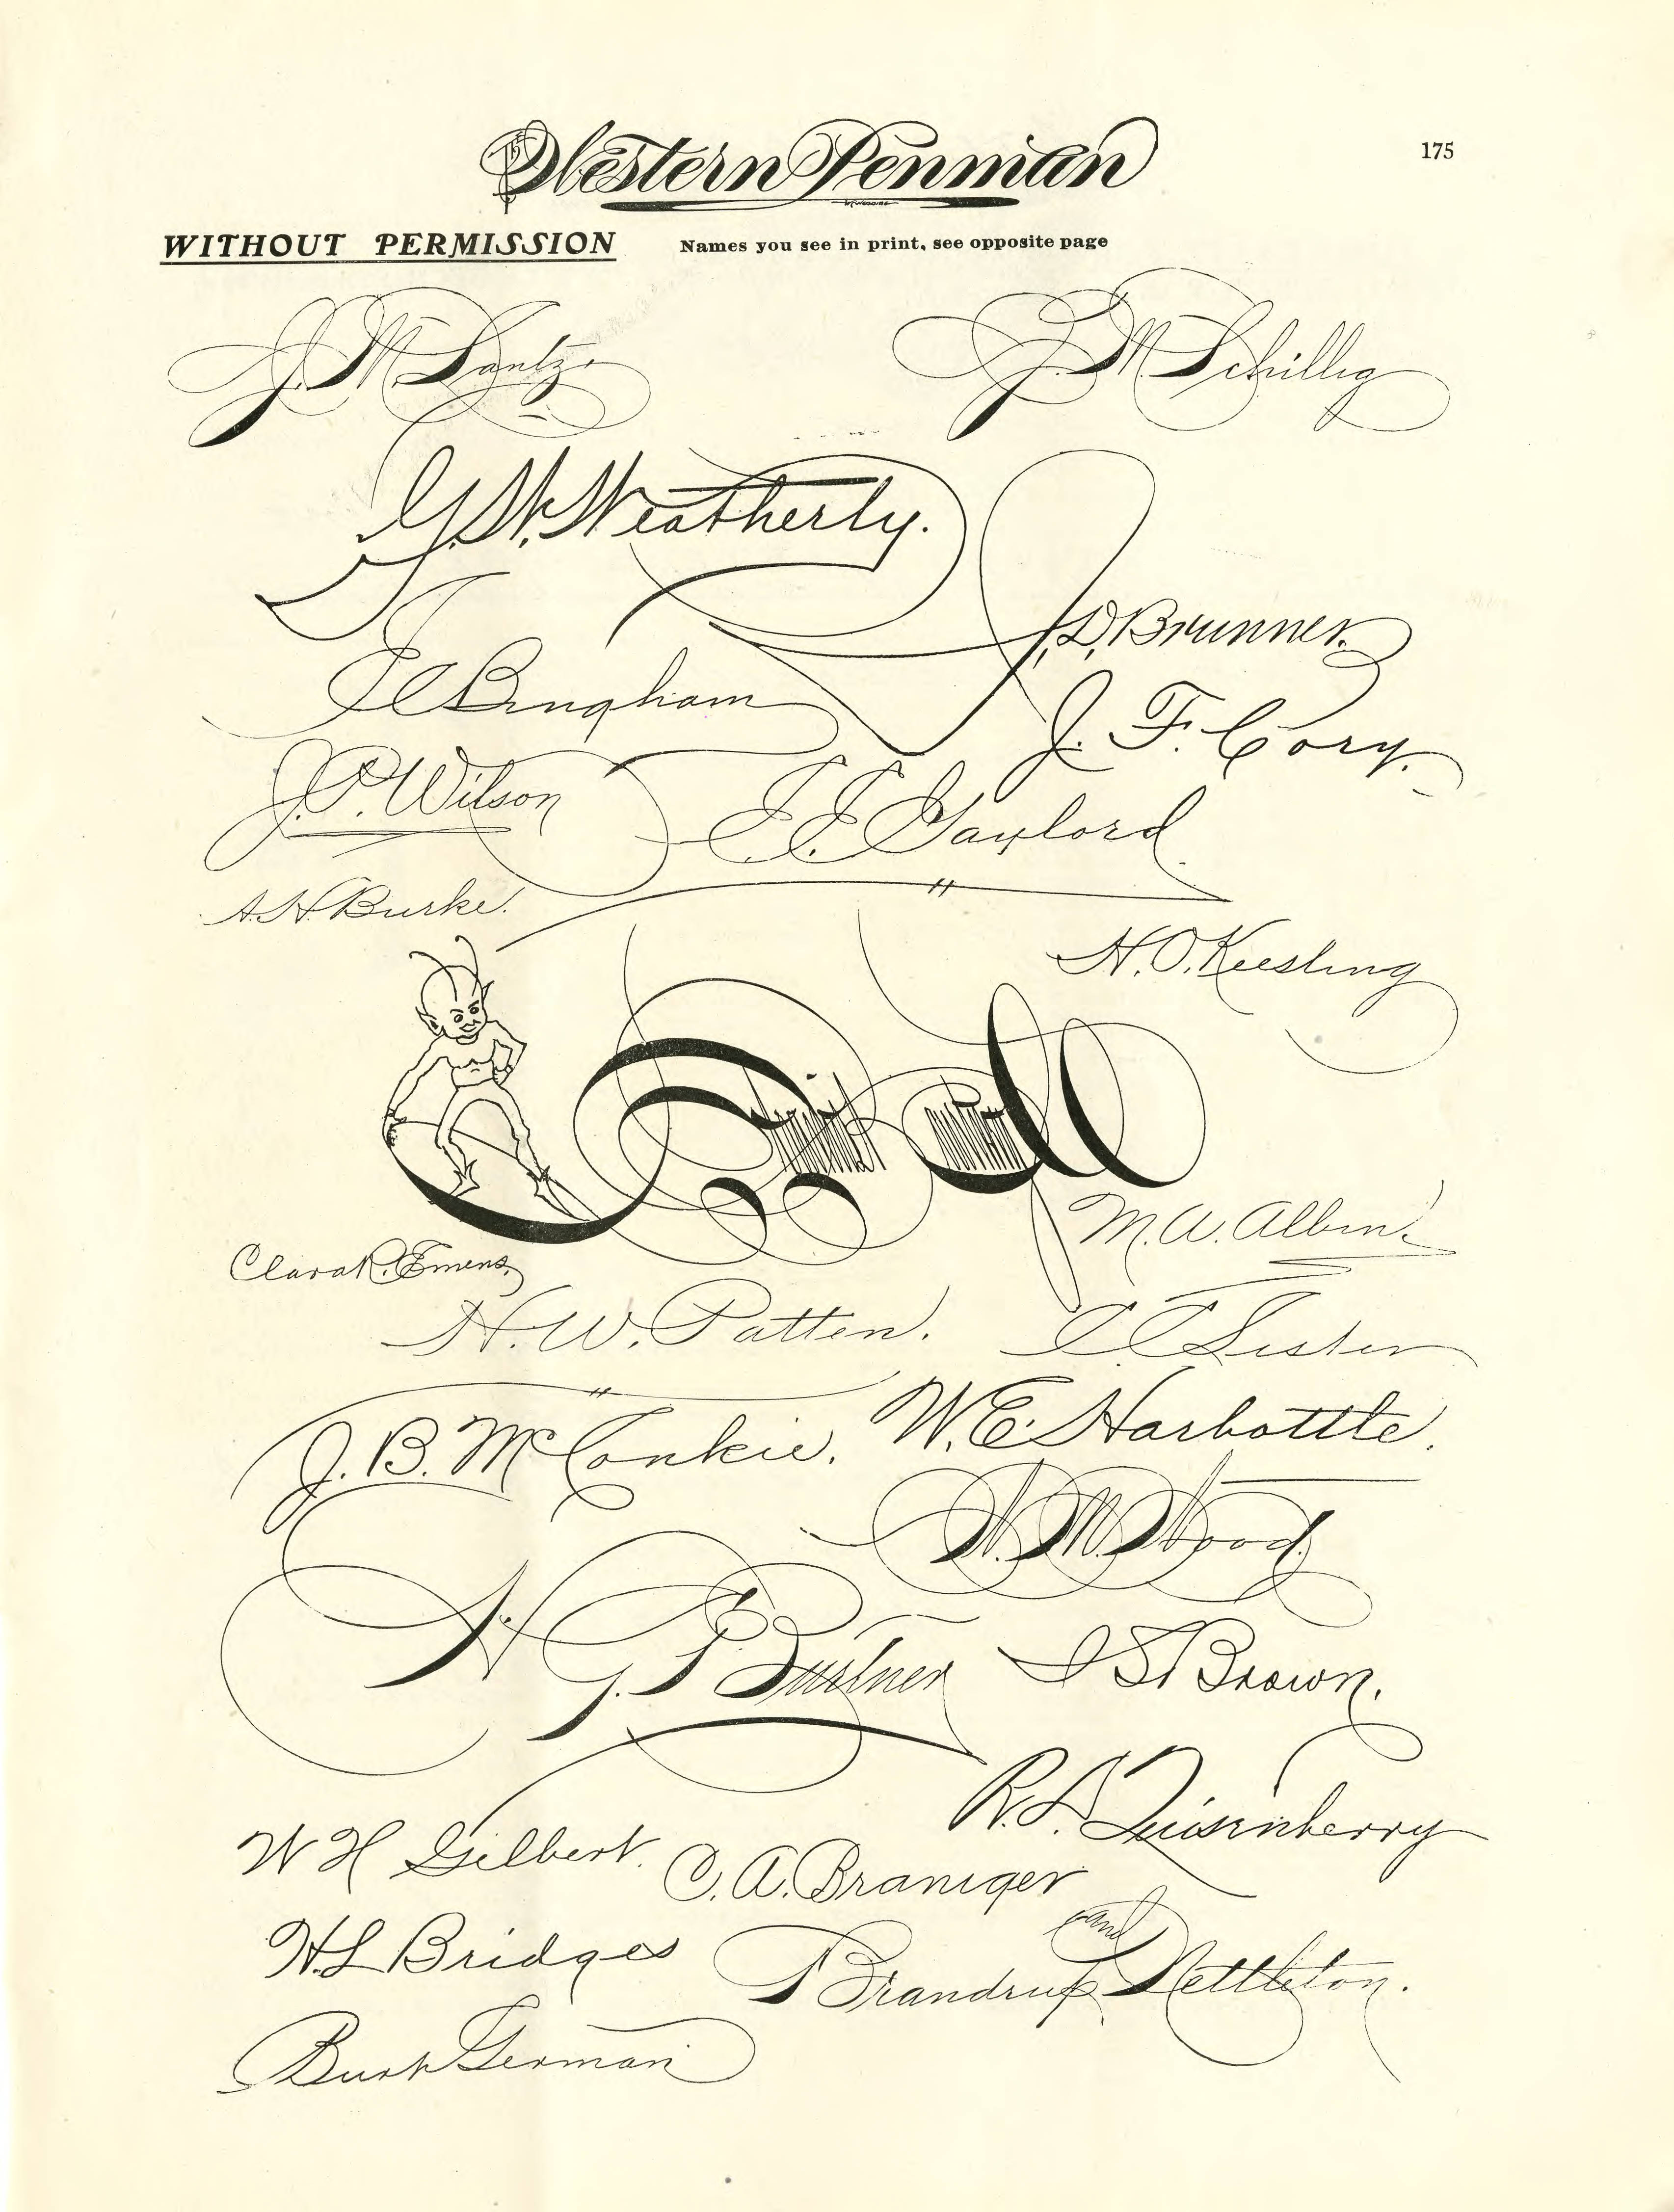 Western Penman
175
WITHOUT PERMISSION Names you see in print, see opposite page
J. M. Lantz. J. M. Schillig
G. W. Weatherly.
J. D. Brunner.
E C Bingham
J. F. Cory.
J. P. Wilson
E. E. Gaylord
A. H. Burke.
H. O. Keesling
M. A. Albin.
Clara R. Emens,
H. W. Patten. C. C. Lister
J. B. McConkie. W. E. Harbottle.
W. M. Wood
H. G. Burtner I S Brown.
R. A. Quisenberry
W H Gilbert. C. A. Braniger
and
H. L Bridges Brandrup Nettleton.
Burt German